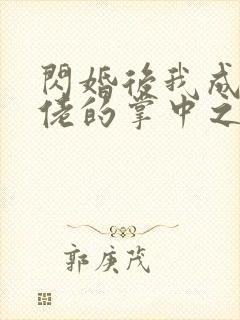 閃婚後我成
佬的掌中之
郭庚茂